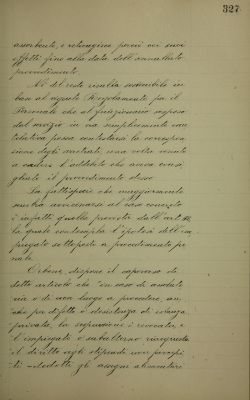 327
assorbente, e retroagisce perciò nei suoi
effetti fino alla data dell'annullato
provvedimento.
Nè del resto sembra sostenibile in
base al vigente Regolamento per il
Personale che al funzionario sospeso
dal servizio in via semplicemente cau
telativa possa contestarsi la correspon
sione degli arretrati una volta venuto
a cadere l'addebito che aveva consi
gliato il provvedimento stesso
La fattispecie che maggiormente
sembra avvicinarsi al caso concreto
è infatti quella prevista dall'art.
la quale contempla l'ipotesi dell'im
piegato sottoposto a procedimento pe
nale.
Orbene, dispone il capoverso di
detto articolo che "in caso di assoluto
ria o di non luogo a procedere, an
che per difetto o desistenza di istanza
privata, la sospensione è revocata, e
l'impiegato o subalterno riacquista
il diritto agli stipendi non percepi
ti dedotti gli assegni alimentari